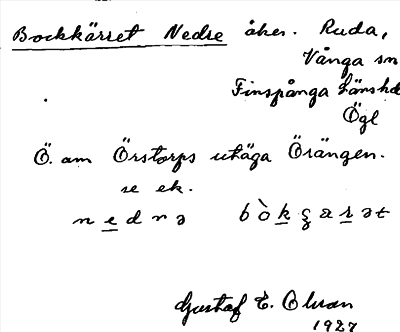 Bockkärret Nedre åker. Ruda,
Vånga sn
Finspånga länshd
Ögl
Ö. om Örstorps utäga Örängen.
se ek.
nednə bòkʒarət
Gustaf E. Olsson
1927